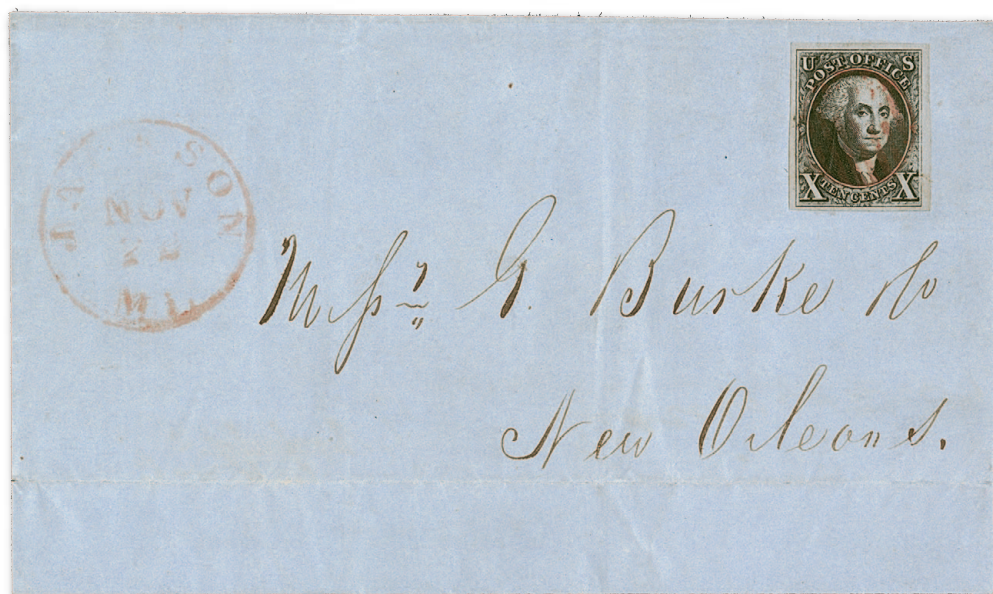 U S
POST OFFICE
X TEN CENTS X
JACKSON
NOV
22
Mi.
Messrs. G. Burke &Co
New Orleans.